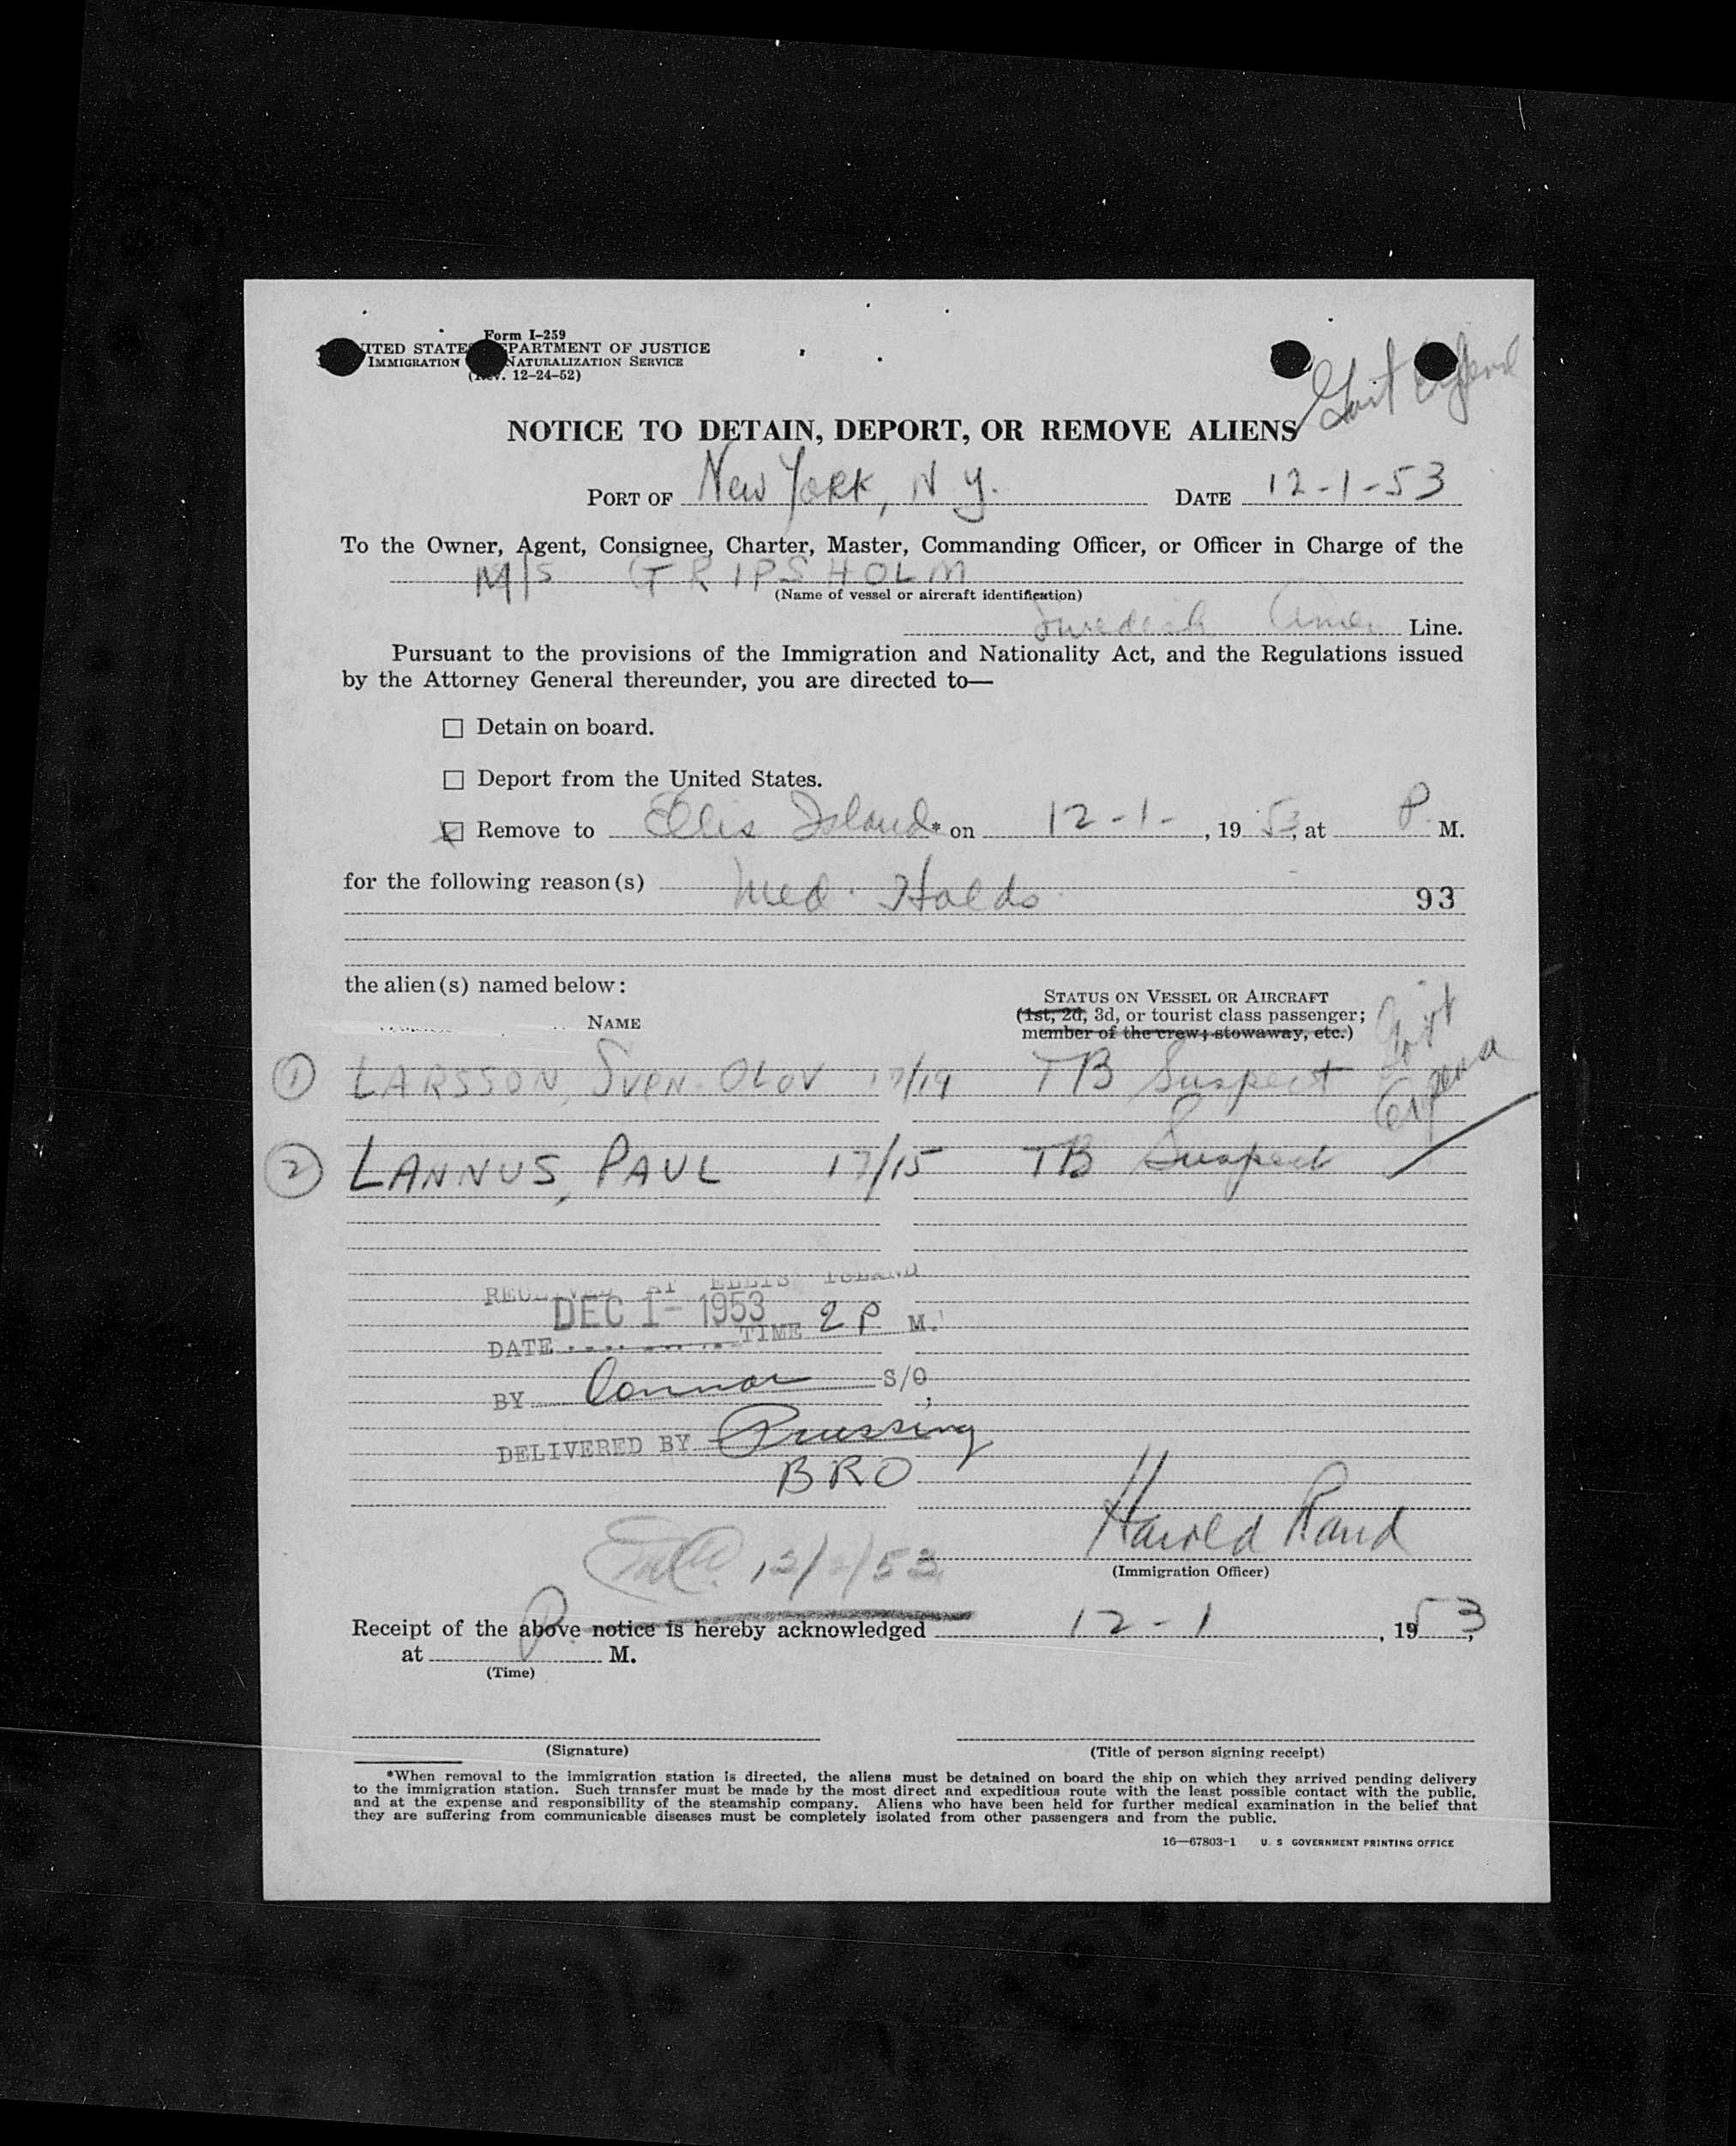 Form I–259
UNITED STATES DEPARTMENT OF JUSTICE
IMMIGRATION NATURALIZATION SERVICE
(Rev. 12–24–52)
NOTICE TO DETAIN, DEPORT, OR REMOVE ALIENS
PORT OF New York, N Y. DATE 12-1-53
To the Owner, Agent, Consignee, Charter, Master, Commanding Officer, or Officer in Charge of the
M/S GRIPSHOLM
(Name of vessel or aircraft identification)
Swedish Amer Line.
Pursuant to the provisions of the Immigration and Nationality Act, and the Regulations issued
by the Attorney General thereunder, you are directed to—
Detain on board.
Deport from the United States.
Remove to Ellis Island* on 12-1-, 1953, at P. M.
for the following reason(s) Med. Holds
93
the alien(s) named below:
STATUS ON VESSEL OR AIRCRAFT
NAME
(1st, 2d, 3d, or tourist class passenger;
member of the crew; stowaway, etc.)
Govt
Expense
① LARSSON, SVEN-OLOV 17/19 TB Suspect
② LANNUS, PAUL 17/15 TB Suspect
RECEIVED AT ELLIS ISLAND
DEC 1 - 1953
DATE TIME 2 P M.
BY Connor S/O
DELIVERED BY Prussing
BRO
Harold Rand
12/2/53
(Immigration Officer)
Receipt of the above notice is hereby acknowledged 12-1, 1953,
at P. M.
(Time)
(Signature) (Title of person signing receipt)
*When removal to the immigration station is directed, the aliens must be detained on board the ship on which they arrived pending delivery
to the immigration station. Such transfer must be made by the most direct and expeditious route with the least possible contact with the public,
and at the expense and responsibility of the steamship company. Aliens who have been held for further medical examination in the belief that
they are suffering from communicable diseases must be completely isolated from other passengers and from the public.
16—67803-1 U. S GOVERNMENT PRINTING OFFICE